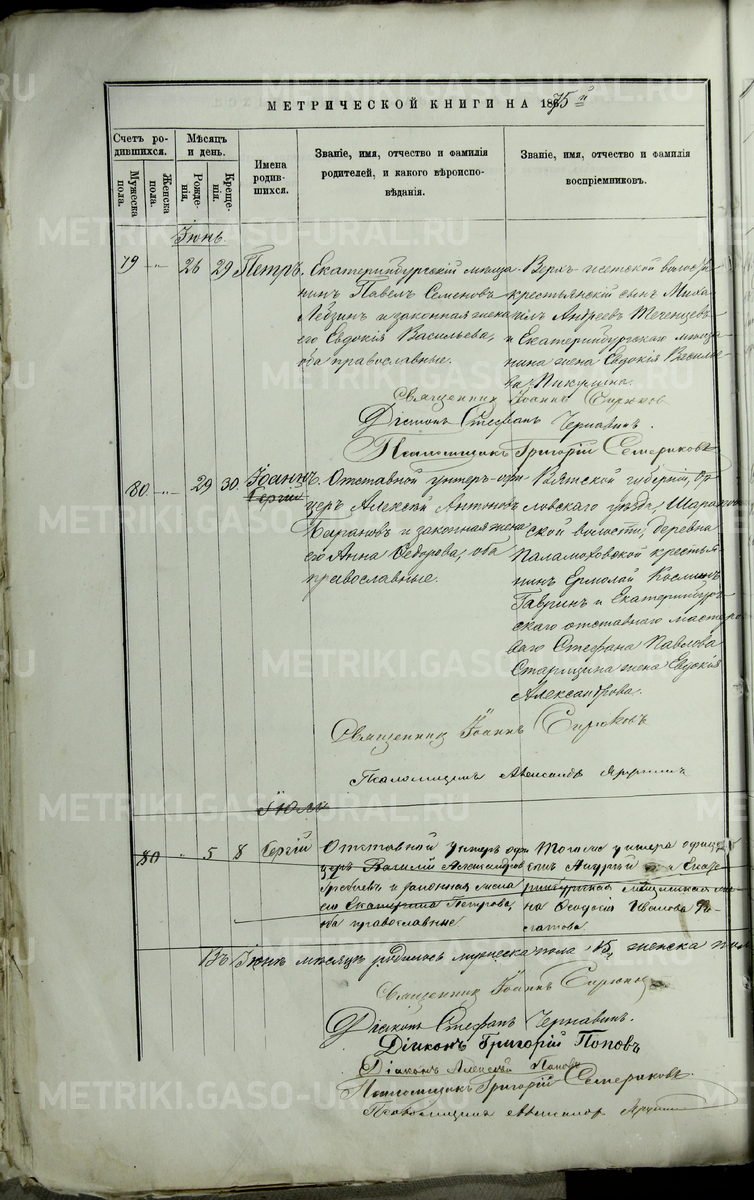 МЕТРИЧЕСКОЙ КНИГИ НА 1875 й
Счетъ ро-
дившихся.
Мѣсяцъ
и день.
Мужеска
пола.
Женска
пола.
Рожде-
нія.
Креще-
нія.
Имена
родив-
шихся.
Званіе, имя, отчество и фамилія
родителей, и какого вѣроиспо-
вѣданія.
Званіе, имя, отчество и фамилія
воспріемниковъ.
Іюнь.
79 " 26 29 Петръ. Екатеринбургскій мѣща-
нинъ Павелъ Семеновъ
и законная жена
его Евдокія Васильева,
оба православные.
Верхъ-исетской волости
крестьянскій сынъ Миха-
илъ Андреевъ
и Екатеринбургскаго мѣща-
нина жена Евдокія Василье-
ва Пикулина.
Священникъ Іоаннъ Сирюковъ
Діаконъ Стефанъ Чернавинъ.
Псаломщикъ Григорій Семериковъ
80 " 29 30 Іоаннъ.
Сергій
Отставной унтеръ-офи-
церъ Алексѣй Антоновъ
и законная жена
его Анна Федорова, оба
православные.
Вятской губерніи, Ор-
ловскаго уѣзда,
ской волости, деревни
Паламоховской крестья-
нинъ Ермолай Космичъ
Гавринъ и Екатеринбург-
скаго отставнаго мастеро-
ваго Стефана Павлова
Старицина жена Евдокія
Александрова.
Священникъ Іоаннъ Сирюковъ
Псаломщикъ Александръ
Іюль
80 " 5 8 Сергій
Отставной унтеръ офи-
церъ Василій Александровъ
и законная жена
его Екатерина Петрова,
оба православные
Тогоже унтера офице-
ра сынъ Андрей и Екате-
ринбургская мѣщанская же-
на Феодосія Иванова
Въ Іюнѣ мѣсяцѣ родилось мужеска пола 15, женска
Священникъ Іоаннъ Сирюковъ
Діаконъ Стефанъ Чернавинъ.
Діаконъ Григорій Поповъ
Діаконъ Алексѣй Поповъ
Псаломщикъ Григорій Семериковъ.
Псаломщикъ Александръ
METRIKI.GASO-URAL.RU